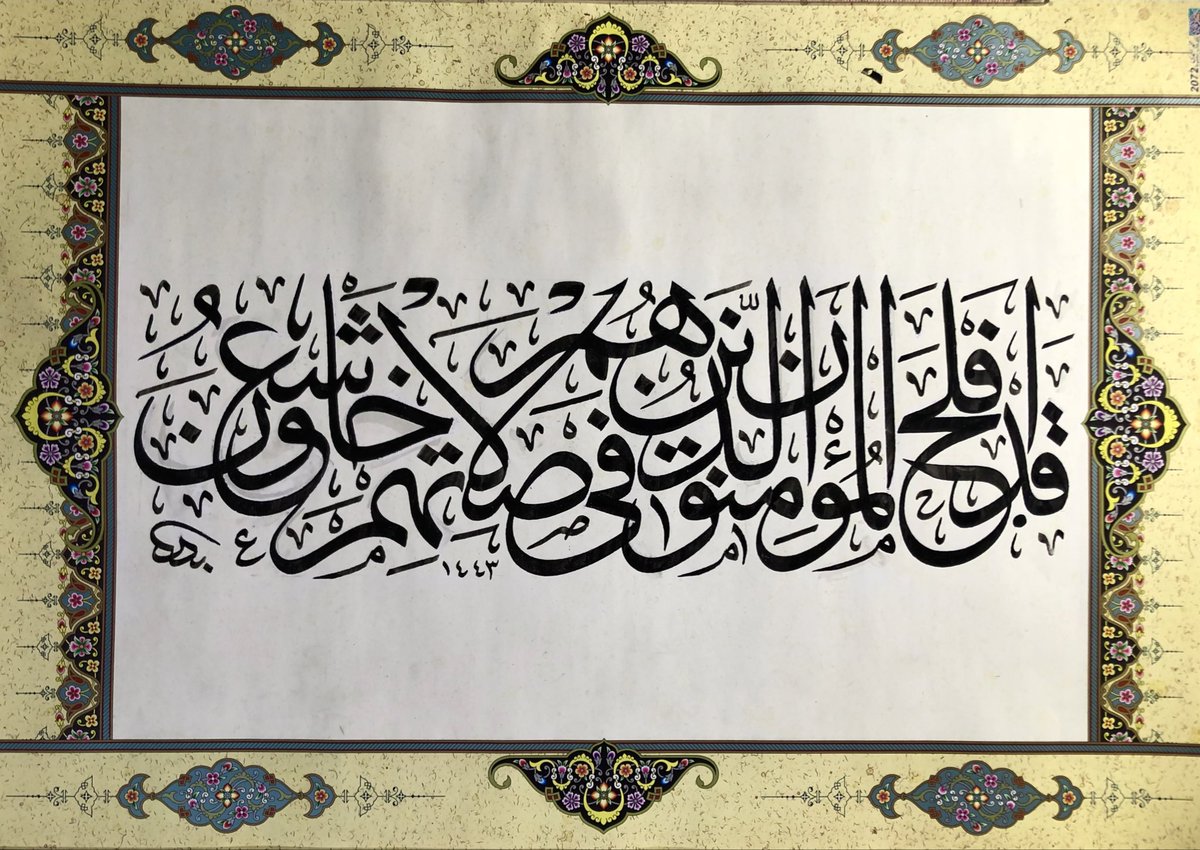 قد أفلح المؤمنون الذين هم في صلاتهم خاشعون
١٤٤٣
2022